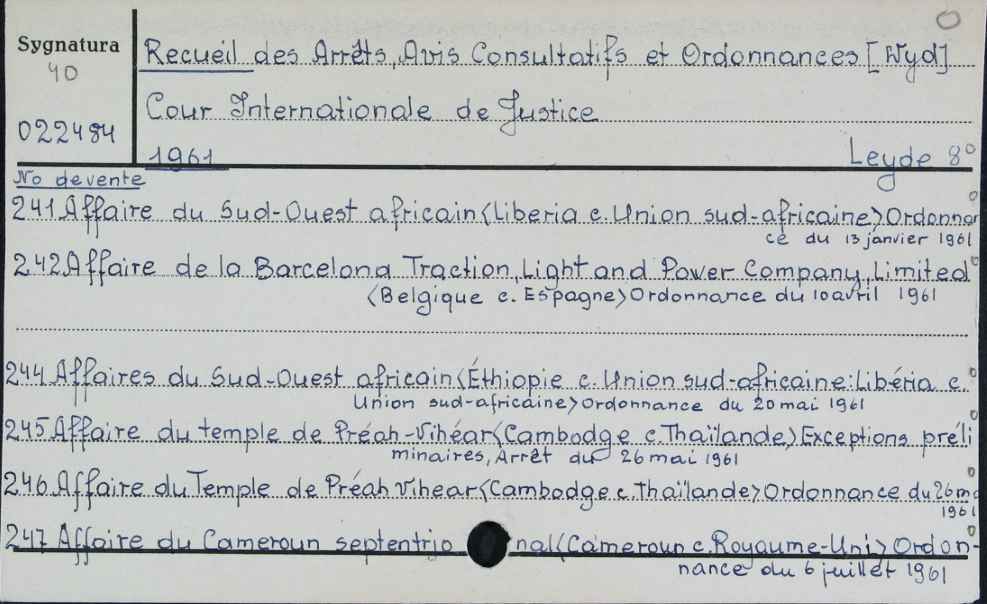 Sygnatura
40
022484
Recueil des Arrêts, Avis Consultatifs et Ordonnances [Wyd]
Cour Internationale de Justice
1961
Leyde 8°
No de vente
241 Affaire du Sud-Ouest africain <Liberia c. Union sud-africaine> Ordonnan
ce du 13 janvier 1961
242 Affaire de la Barcelona Traction, Light and Power Company, Limited
<Belgique c. Espagne> Ordonnance du 10 avril 1961
244 Affaires du Sud-Ouest africain <Éthiopie c. Union sud-africaine: Libéria c.
Union sud-africaine> Ordonnance du 20 mai 1961
245 Affaire du temple de Préah-Vihéar <Cambodge c. Thaïlande> Exceptions préli
minaires, Arrêt du 26 mai 1961
246 Affaire du Temple de Préah Vihear <Cambodge c. Thaïlande> Ordonnance du 26 ma
1961
247 Affaire du Cameroun septentrio nal <Cameroun c. Royaume-Uni> Ordon-
nance du 6 juillet 1961